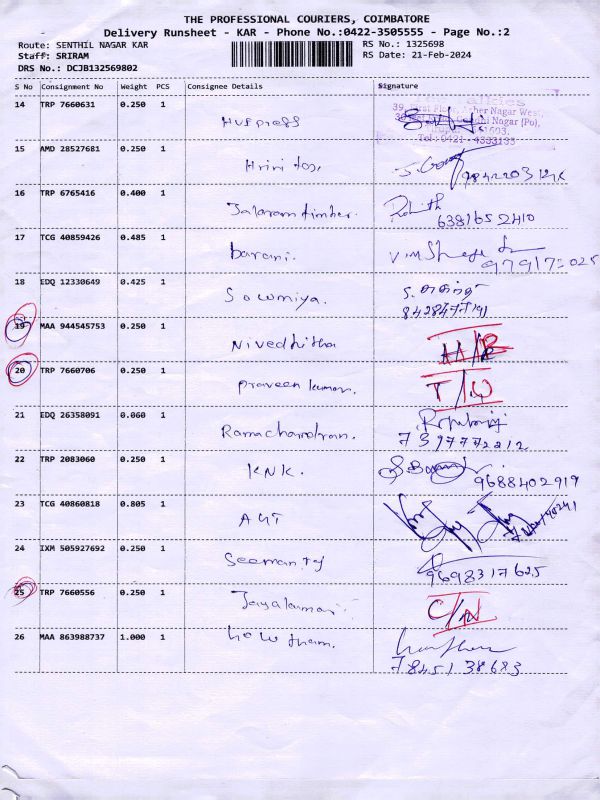 THE PROFESSIONAL COURIERS, COIMBATORE
Delivery Runsheet - KAR - Phone No.:0422-3505555 - Page No.:2
Route: SENTHIL NAGAR KAR
RS No.: 1325698
Staff: SRIRAM
RS Date: 21-Feb-2024
DRS No.: DCJB132569802
S No Consignment No Weight PCS Consignee Details Signature
14 TRP 7660631 0.250 1
15 AMD 28527681 0.250 1
16 TRP 6765416 0.400 1 Jalaram timber. Rohith
6381652410
17 TCG 40859426 0.485 1 barani.
18 EDQ 12330649 0.425 1 Sowmiya.
8428477191
19 MAA 944545753 0.250 1 Nivedhitha
20 TRP 7660706 0.250 1 Praveen kumar.
21 EDQ 26358091 0.060 1 Ramachandran.
7397772212
22 TRP 2083060 0.250 1 KNK. 9688402919
23 TCG 40860818 0.805 1
24 IXM 505927692 0.250 1
9698317625
25 TRP 7660556 0.250 1 Jayakumar. C/N
26 MAA 863988737 1.000 1
7845138683